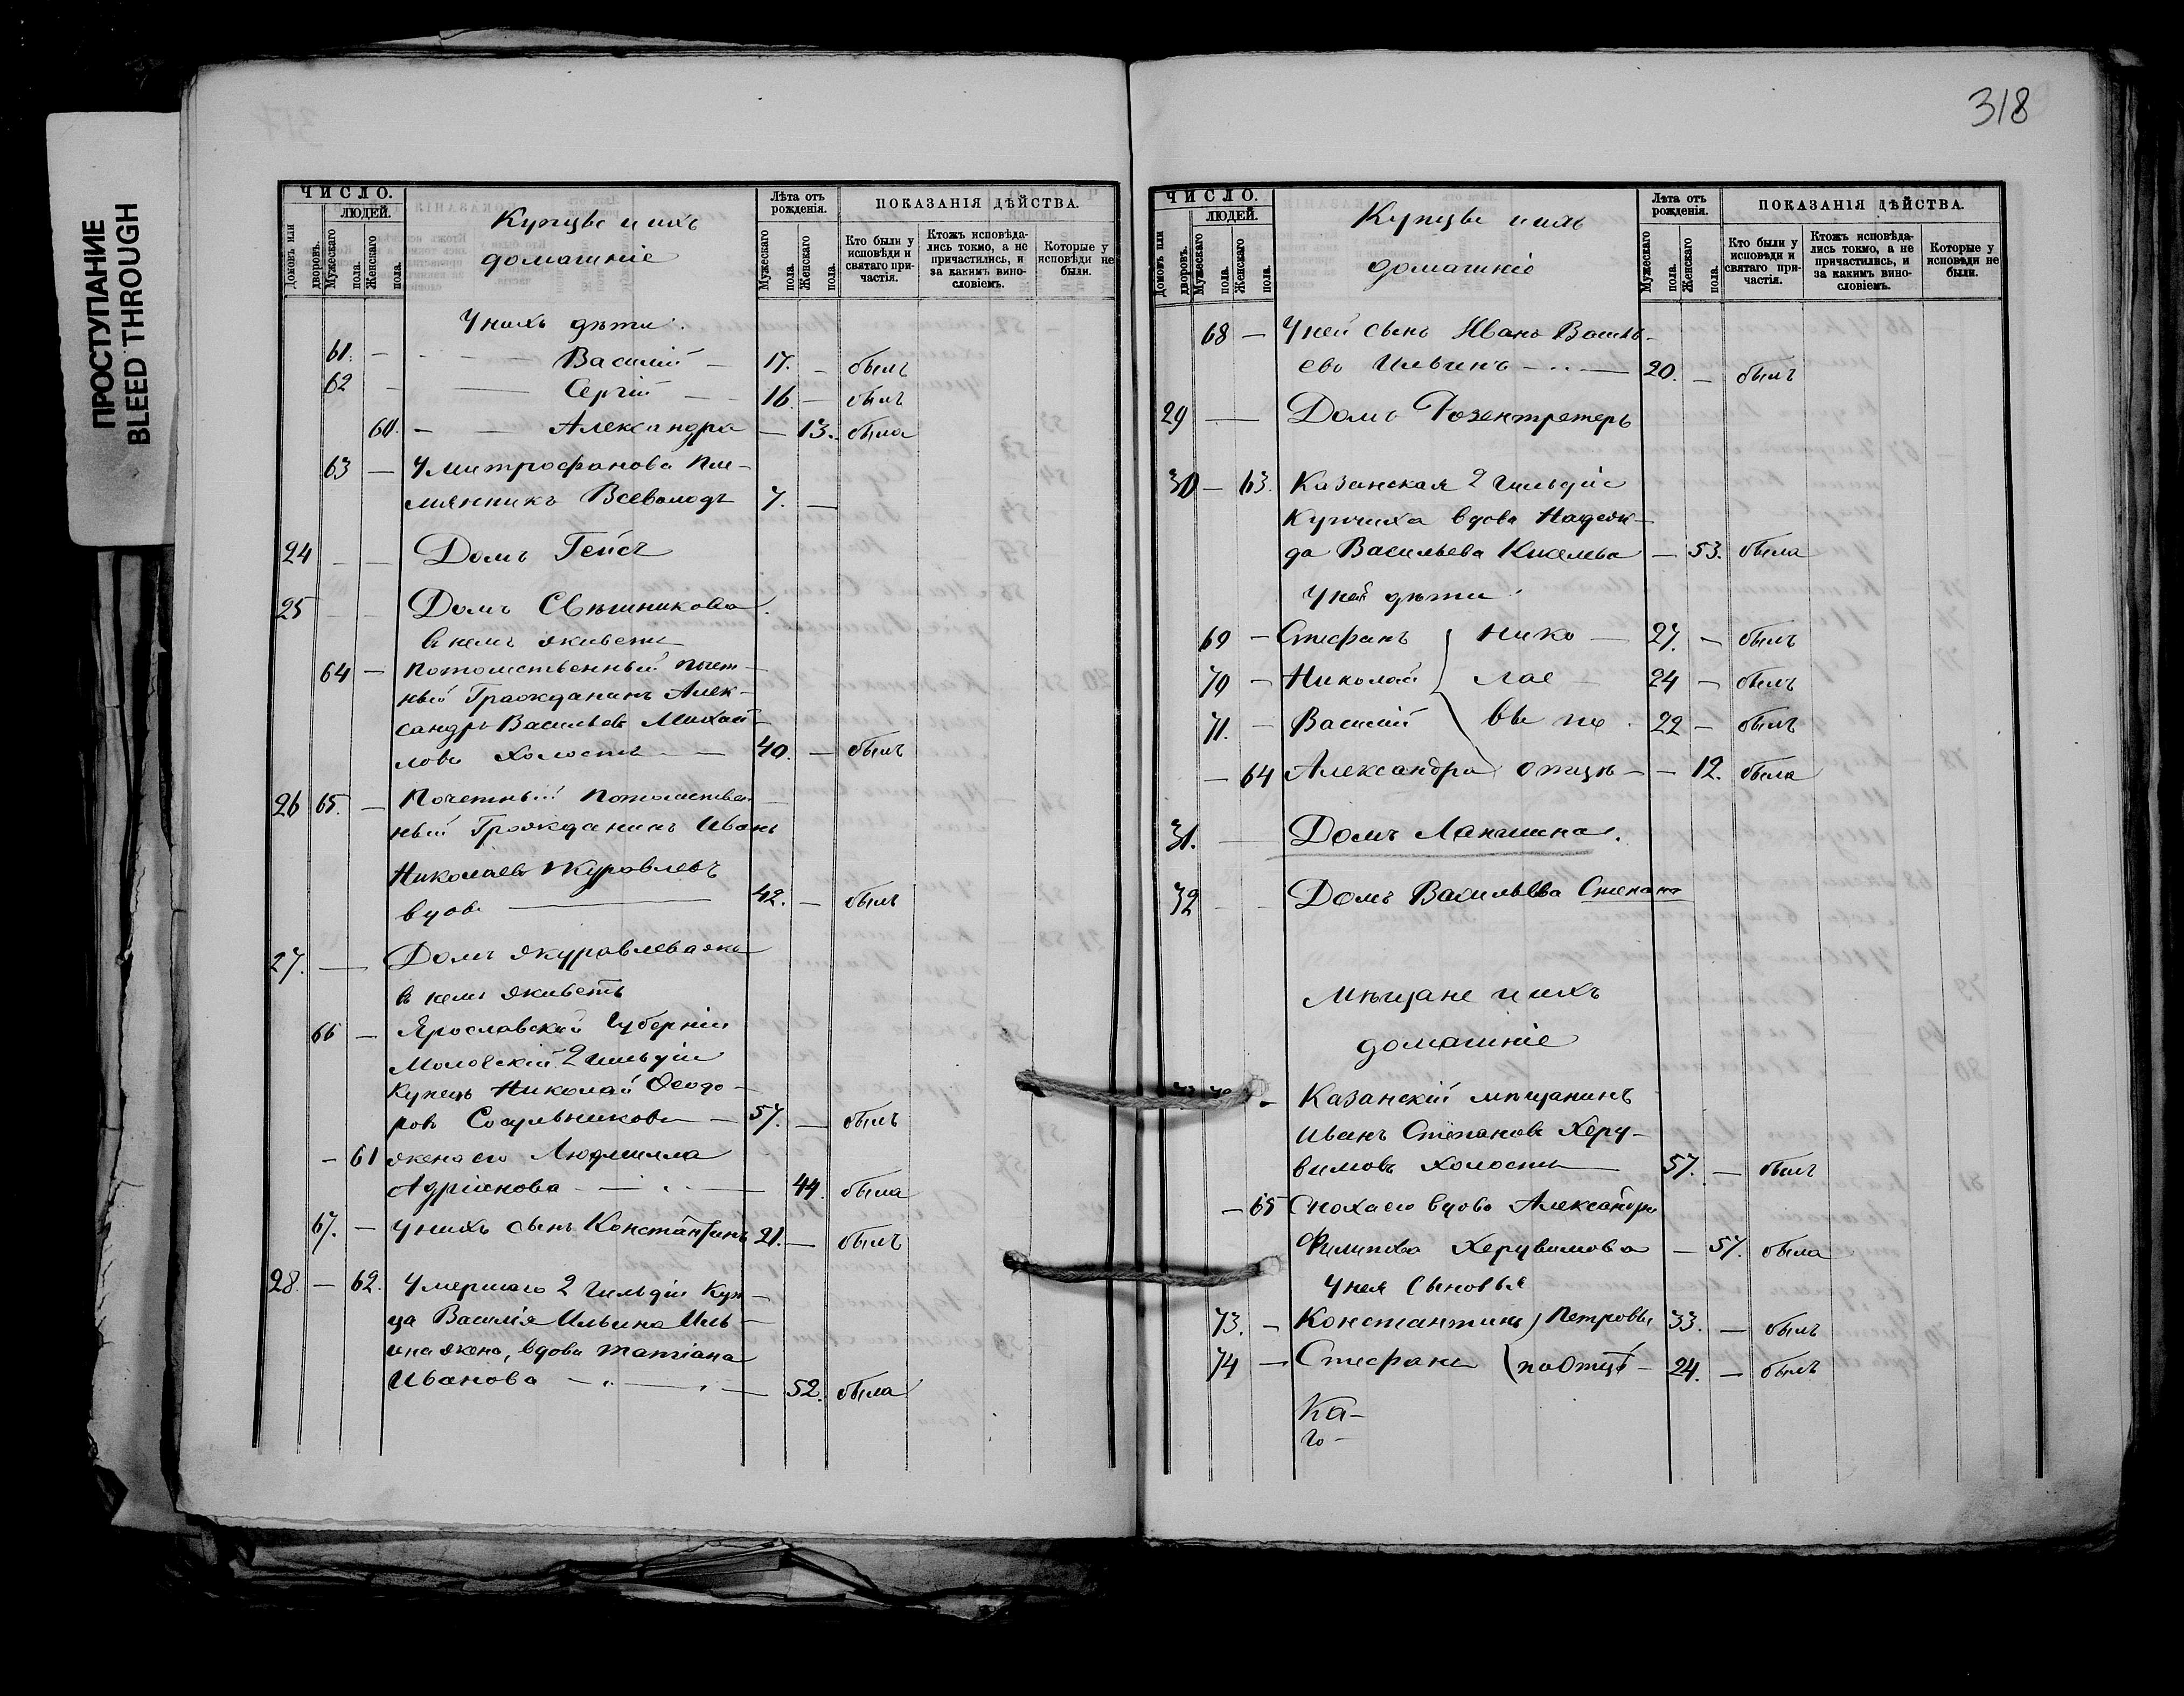 ПРОСТУПАНИЕ
BLEED THROUGH
ЧИСЛО.
ЛЮДЕЙ.
Домовъ или дворовъ.
Мужескаго пола.
Женскаго пола.
Купцы и ихъ
домашніе
Лѣта отъ рожденія.
Мужескаго пола.
Женскаго пола.
ПОКАЗАНІЯ ДѢЙСТВА.
Кто были у исповѣди и святаго причастія.
Ктожъ исповѣдались токмо, а не причастились, и за какимъ винословіемъ.
Которые у исповѣди не были.
У нихъ дѣти:
61. - Василій - 17. - былъ
62 - Сергій - 16 - былъ
60. - Александра - 13. была
63 - У Митрофанова пле-
мянникъ Всеволодъ 7. -
24 - - Домъ Гейсъ
25 - - Домъ Свѣшникова.
въ немъ живетъ
64 - Потомственный почет-
ный Гражданинъ Алек-
сандръ Васильевъ Михай-
ловъ холостъ - 40. - былъ
26 65. - Почетный Потомствен-
ный Гражданинъ Иванъ
Николаевъ Журавлевъ
вдовъ - 42. - былъ
27. - Домъ Журавлева же
въ немъ живетъ
66 - Ярославской Губерніи
Мологскій 2 гильдіи
Купецъ Николай Ѳеодо-
ровъ Сосульниковъ - 57. - былъ
- 61 жена его Людмилла
Адріанова - 44. была
67. - У нихъ сынъ Константинъ 21. - былъ
28. - 62. Умершаго 2 гильдіи Куп-
ца Василія Ильина Иль-
ина жена, вдова Татіана
Иванова - 52. была
318
ЧИСЛО.
ЛЮДЕЙ.
Домовъ или дворовъ.
Мужескаго пола.
Женскаго пола.
Купцы и ихъ
домашніе
Лѣта отъ рожденія.
Мужескаго пола.
Женскаго пола.
ПОКАЗАНІЯ ДѢЙСТВА.
Кто были у исповѣди и святаго причастія.
Ктожъ исповѣдались токмо, а не причастились, и за какимъ винословіемъ.
Которые у исповѣди не были.
68 - У ней сынъ Иванъ Василь-
евъ Ильинъ - 20. - былъ
29 - Домъ Розентретеръ
30 - 63. Казанская 2 гильдіи
Купчиха вдова Надеж-
да Васильева Кикелева - 53. была
У ней дѣти:
69 - Стефанъ Нико - 27. - былъ
70 - Николай лае - 24 - былъ
71. - Василій вы по 22 - былъ
- 64 Александра отцѣ - - 12. была
31. - Домъ Лапшина.
32 - - Домъ Васильева Степана
Мѣщане и ихъ
домашніе
- Казанскій мѣщанинъ
Иванъ Степановъ Херу-
вимовъ холостъ - 57. - былъ
- 65 Сноха его вдова Александра
Филипова Херувимова - 57. была
У нея сыновья
73. - Константинъ Петровы 33. - былъ
74 - Стефанъ по Отцѣ - 24. - былъ
Ка-